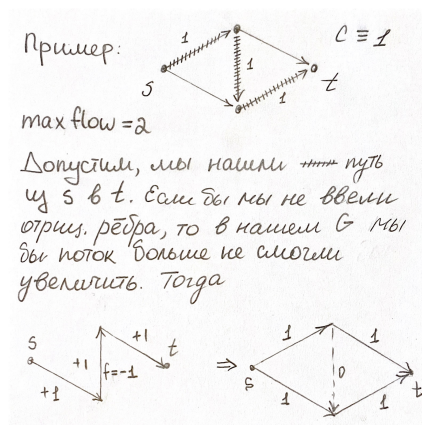 Пример:
1
C ≡ 1
1
1
S
t
max flow = 2
Допустим, мы нашли путь
из S в t. Если бы мы не ввели
отриц. рёбра, то в нашем G мы
бы поток больше не смогли
увеличить. Тогда
S
+1
t
+1
f=-1
+1
⇒
S
1
1
0
1
1
t